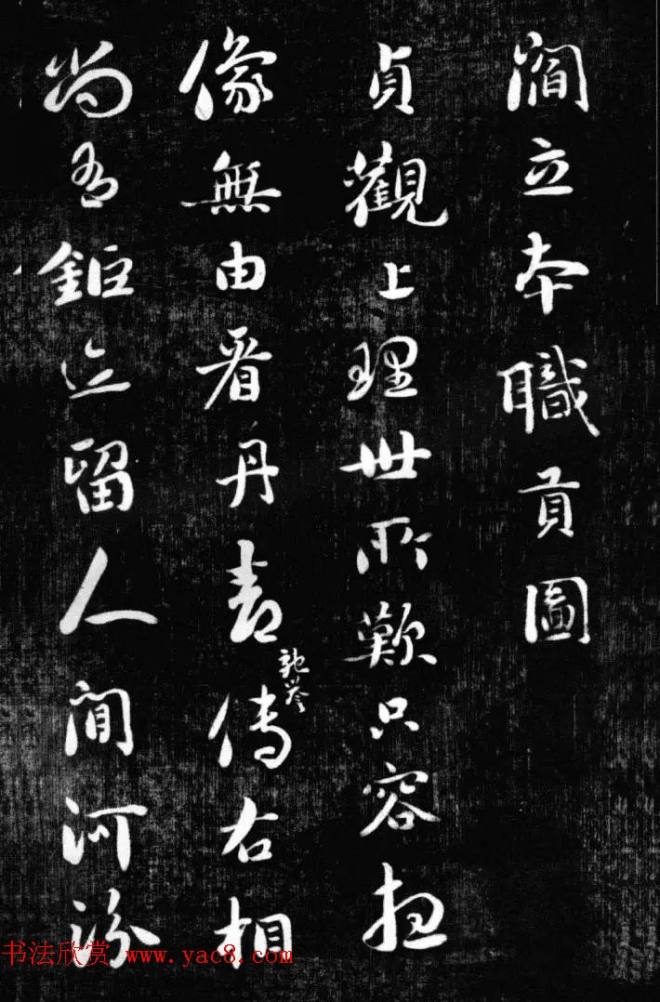 閻立本職貢圖
貞觀上理世所歎只容想
像無由看丹青馳譽傳右相
尚有鉅迹留人間河汾
书法欣赏 www.yac8.com